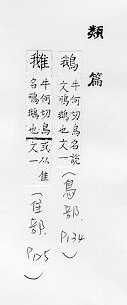 類篇
鵝
牛何切鳥名說
文鴚鵝也文一
(鳥部. P134)
牛何切鳥或从隹
名鴚鵝也文一
(隹部. P125)